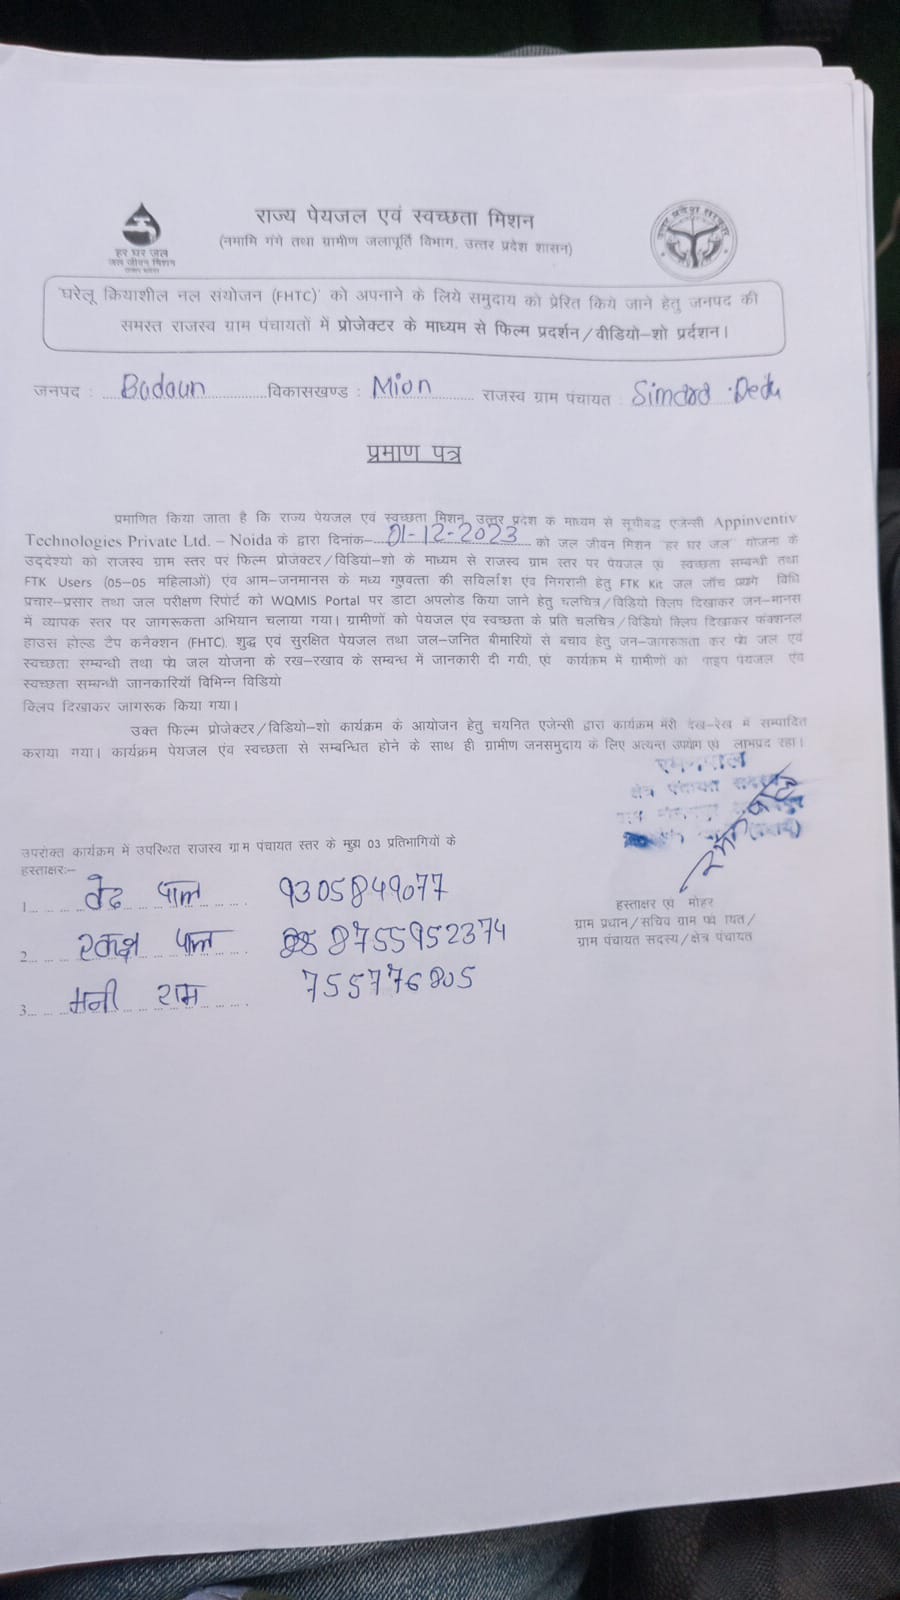 राज्य पेयजल एवं स्वच्छता मिशन
(नमामि गंगे तथा ग्रामीण जलापूर्ति विभाग, उत्तर प्रदेश शासन)
हर घर जल
जल जीवन मिशन
'घरेलू क्रियाशील नल संयोजन (FHTC)' को अपनाने के लिये समुदाय को प्रेरित किये जाने हेतु जनपद की
समस्त राजस्व ग्राम पंचायतों में प्रोजेक्टर के माध्यम से फिल्म प्रदर्शन/वीडियो-शो प्रर्दशन।
जनपद : Badaun विकासखण्ड : Mion राजस्व ग्राम पंचायत : Simara Dedu
प्रमाण पत्र
प्रमाणित किया जाता है कि राज्य पेयजल एवं स्वच्छता मिशन, उत्तर प्रदेश के माध्यम से सूचीबद्ध एजेन्सी Appinventiv
Technologies Private Ltd. – Noida के द्वारा दिनांक- 01-12-2023 को जल जीवन मिशन "हर घर जल" योजना के
उद्देश्यो को राजस्व ग्राम स्तर पर फिल्म प्रोजेक्टर/विडियो-शो के माध्यम से राजस्व ग्राम स्तर पर पेयजल एवं स्वच्छता सम्बन्धी तथा
FTK Users (05-05 महिलाओं) एंव आम-जनमानस के मध्य गुणवत्ता की सर्विलांश एंव निगरानी हेतु FTK Kit जल जाँच प्रयोग विधि
प्रचार-प्रसार तथा जल परीक्षण रिपोर्ट को WQMIS Portal पर डाटा अपलोड किया जाने हेतु चलचित्र/विडियो क्लिप दिखाकर जन-मानस
में व्यापक स्तर पर जागरूकता अभियान चलाया गया। ग्रामीणों को पेयजल एंव स्वच्छता के प्रति चलचित्र/विडियो क्लिप दिखाकर फंक्शनल
हाउस होल्ड टैप कनैक्शन (FHTC), शुद्ध एवं सुरक्षित पेयजल तथा जल-जनित बीमारियों से बचाव हेतु जन-जागरुकता कर पेय जल एवं
स्वच्छता सम्बन्धी तथा पेय जल योजना के रख-रखाव के सम्बन्ध में जानकारी दी गयी, एवं कार्यक्रम में ग्रामीणों को पाइप पेयजल एंव
स्वच्छता सम्बन्धी जानकारियॉ विभिन्न विडियो
क्लिप दिखाकर जागरूक किया गया।
उक्त फिल्म प्रोजेक्टर/विडियो-शो कार्यक्रम के आयोजन हेतु चयनित एजेन्सी द्वारा कार्यक्रम मेरी देख-रेख में सम्पादित
कराया गया। कार्यक्रम पेयजल एंव स्वच्छता से सम्बन्धित होने के साथ ही ग्रामीण जनसमुदाय के लिए अत्यन्त उपयोग एवं लाभप्रद रहा।
क्षेत्र पंचायत सदस्य
उपरोक्त कार्यक्रम में उपस्थित राजस्व ग्राम पंचायत स्तर के मुख्य 03 प्रतिभागियों के
हस्ताक्षरः-
1. वेद पाल 9305849077
2. पाल 8755952374
3. मनी राम 755776805
हस्ताक्षर एवं मोहर
ग्राम प्रधान/सचिव ग्राम पंचायत/
ग्राम पंचायत सदस्य/क्षेत्र पंचायत